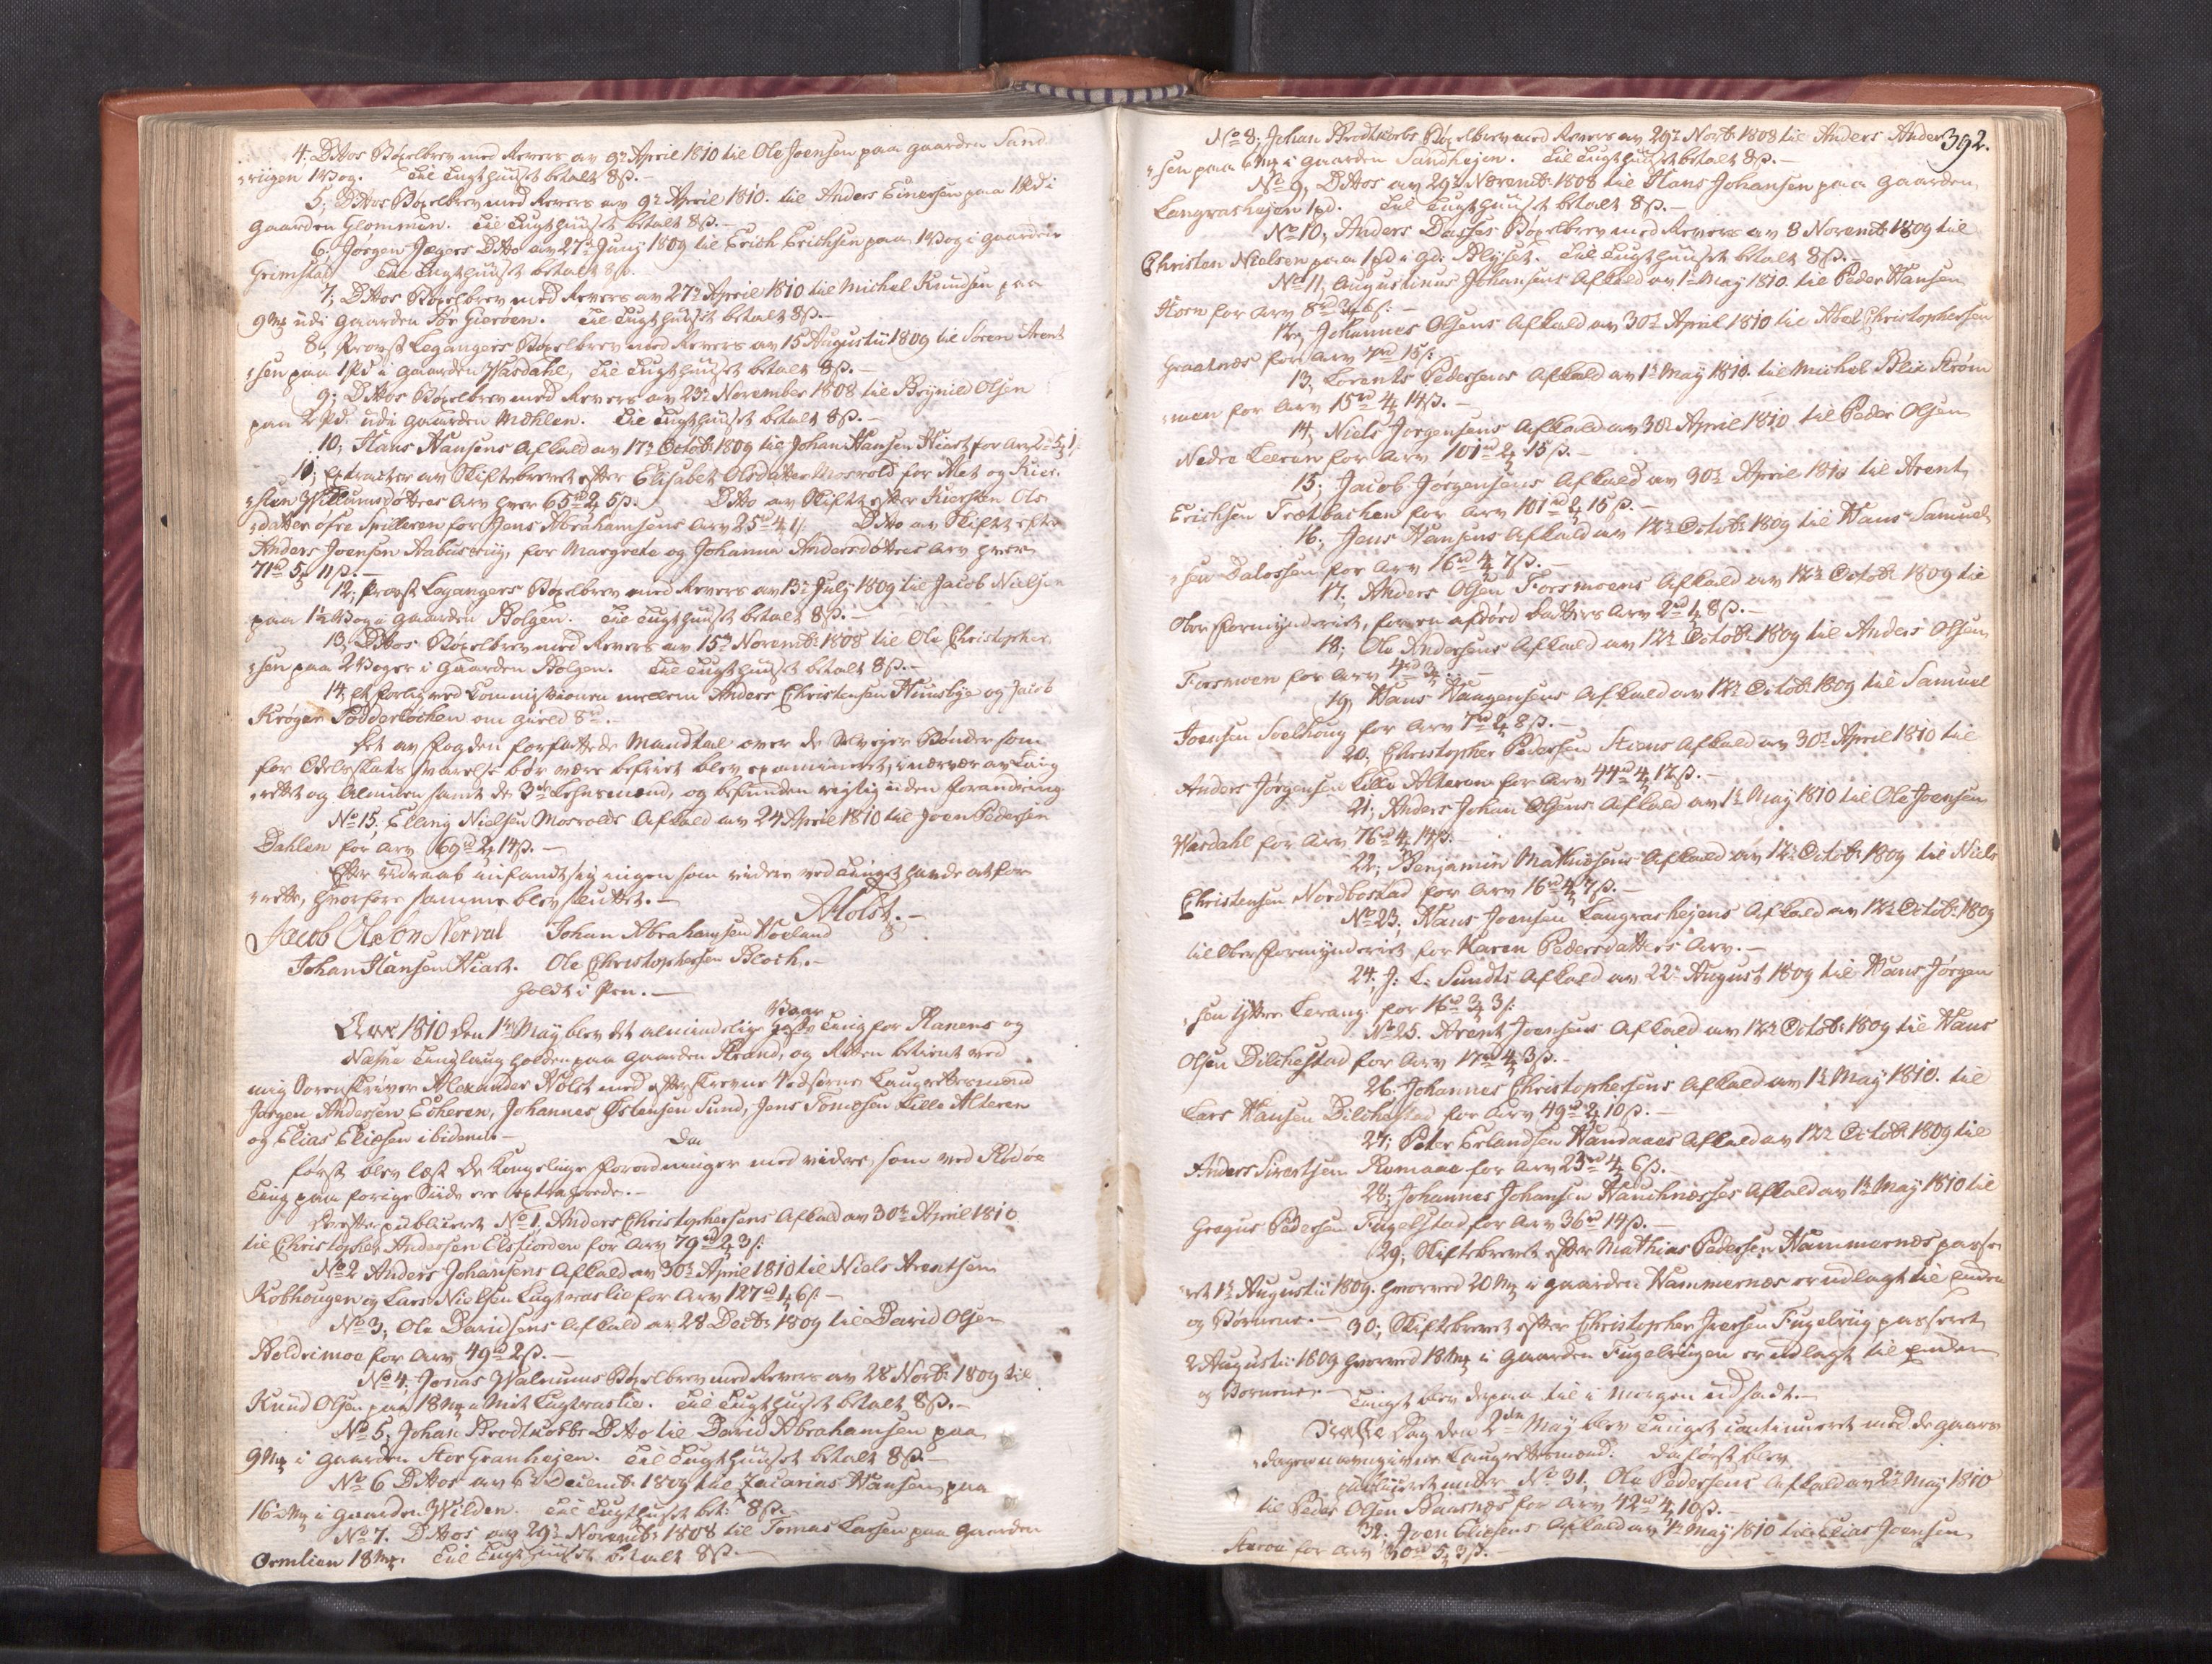 4, Dittos Bøxelbrev med Revers av 9de April 1810 til Ole Joensen paa gaarden Sand
viigen 1 Vog. Til Tugthuuset betalt 8 ß.
5, Dittos Bøxelbrev med Revers av 9de April 1810. til Anders Einersen paa 1 Pd i
gaarden Glommen. Til Tugthuuset betalt 8 ß.
6, Jørgen Jægers Ditto av 27de Juny 1809 til Erich Erichsen paa 1 Vog i gaarden
Grimstad Til Tugthuuset betalt 8 ß.
7, Dittos Bøxelbrev med Revers av 27de April 1810 til Michel Knudsen paa
9 mk udi gaarden Sør Gierøen. Til Tugthuuset betalt 8 ß.
8, Provst Legangers Bøxelbrev med Revers av 15 Augustii 1809 til Søren Arent
sen paa 1 Pd i gaarden Vasdahl, Til Tugthuuset betalt 8 ß.
9, Dittos Bøxelbrev med Revers av 23de November 1808 til Brynild Olsen
paa 2 Pd. udi gaarden Mæhlen. Til Tugthuuset betalt 8 ß.
10, Hans Hansens Afkald av 17de Octobr 1809 til Johan Hansen Hiart for Arv
11, Extracter av Skiftebrevet efter Elisabet Olsdatter Mosvold for Met og Kier
sten Villumsdøttres Arv hver 65 rd 2 5 ß. Ditto av Skiftet efter Kiersten Ols
datter øfre Spilleren for Jens Abrahamsens Arv 25 rd 4 1 ß Ditto av Skiftet efter
Anders Joensen Aabusviig, for Margrete og Johanna Andersdøttres Arv hver
71 rd 5 11 ß.
12, Provst Legangers Bøxelbrev med Revers av 13de July 1809 til Jacob Nielsen
paa 1½ Vog i gaarden Bolgen. Til Tugthuuset betalt 8 ß.
13, Dittos Bøxelbrev med Revers av 15de Novembr 1808 til Ole Christopher
sen paa 2 Voger i Gaarden Bolgen. Til Tugthuuset betalt 8 ß.
14, et forlig ved Commissionen mellem Anders Christensen Huusbye og Jacob
Krøger Fodderløchen om gield 8 rd.
Det av Fogden forfattede Mandtal over de Selveiger Bønder som
for Odelsskats svarelse bør være befriet blev examineret, i nærvær av Laug
rettet og Almuen samt de 3de Lehnsmænd, og befunden rigtig uden forandring
No 15, Elling Nielsen Mosvolds Afkald av 24 April 1810 til Joen Pedersen
Dahlen for Arv 69 rd 2 14 ß.
Efter udraab indfandt sig ingen som videre ved Tinget havde at for
rette, hvorfore samme blev sluttet.
AHolst.
Jacob Olsøn Nerval Johan Abrahamsen Voeland
Johan Hansen Hiart. Ole Christophersen Bloch.
holdt i Pen.
Vaar
Anno 1810 den 1te May blev det almindelige Ting for Ranens og
Næsne Tinglaug holden paa gaarden Strand, og Retten betient ved
mig Sorenskriver Alexander Holst med efterskrevne Eedsorne Laugrettesmænd
Jørgen Andersen Echeren, Johannes Østensen Sund, Jens Tomæsen Lille Alteren
og Elias Eliæsen ibidem. Da
først blev læst de Kongelige forordninger med videre, som ved Rødøe
Ting paa forige Side ere extraherede.
Derefter publiceret No 1, Anders Christophersens Afkald av 30de April 1810
til Christopher Andersen Elsfiorden for Arv 79 rd 2 3 ß
No 2 Anders Johansens Afkald av 30de April 1810 til Niels Arentsen
Kobhougen og Lars Nielsen Lugtvaslie for Arv 127 rd 4 6 ß
No 3, Ole Davidsens Afkald av 28 Decbr 1809 til David Olsen
Boldermoe for Arv 49 rd 2 ß.
No 4, Jonas Walnums Bøxelbrev med Revers av 28 Novbr 1809 til
Knud Olsen paa 18 mk i Mit Lugtvaslie. Til Tugthuuset betalt 8 ß.
No 5, Johan Brodtkorbs Ditto til David Abrahamsen paa
9 mk i gaarden Stor Granheien. Til Tugthuuset betalt 8 ß.
No 6 Dittos av 6te Decembr 1809 til Zacarias Hansen paa
16 mk i gaarden Wilden. Til Tugthuuset bet. 8 ß.
No 7. Dittos av 29de Novembr 1808 til Tomas Larsen paa gaarden
Ormlien 18 mk. Til Tugthuuset betalt 8 ß.
392.
No 8, Johan Brodtkorbs Bøxelbrev med Revers av 29de Novbr 1808 til Anders Ander
sen paa 6 mk i gaarden Sandheien. Til Tugthuuset betalt 8 ß.
No 9, Dittos av 29de Novembr 1808 til Hans Johansen paa gaarden
Langvasheien 1 pd. Til Tugthuuset betalt 8 ß.
No 10, Anders Dasses Bøxelbrev med Revers av 8 Novembr 1809 til
Christen Nielsen paa 1 pd i gd. Blyset. Til Tugthuuset betalt 8 ß.
No 11, Augustinus Johansens Afkald av 1te May 1810. til Peder Hansen
Horn for Arv 8 rd 3 6 ß.
12, Johannes Olsens Afkald av 30de April 1810 til Abel Christophersen
Graatnæs for Arv 7 rd 15 ß
13, Lorents Pedersens Afkald av 1te May 1810. til Michel Blix Strøm
men for Arv 15 rd 4 14 ß.
14, Niels Jørgensens Afkald av 30de April 1810 til Peder Olsen
Nedre Leeren for Arv 101 rd 2 15 ß.
15, Jacob Jørgensens Afkald av 30de April 1810 til Arent
Erichsen Trætbachen for Arv 101 rd 2 15 ß.
16, Jens Hansens Afkald av 12te Octobr 1809 til Hans Samuel
sen Dalossen for Arv 16 rd 4 7 ß.
17, Anders Olsen Forsmoens Afkald av 12te Octobr 1809 til
Ober Formynderiet, for en afdød datters Arv 2 rd 1 8 ß.
18, Ole Andersens Afkald av 12te Octobr 1809 til Anders Olsen
Forsmoen for Arv 4 rd 3
19, Hans Haagensens Afkald av 12te Octobr 1809 til Samuel
Joensen Soelhoug for Arv 7 rd 2 8 ß.
20, Christopher Pedersen Stiens Afkald av 30te April 1810 til
Anders Jørgensen Lille Alteren for Arv 44 rd 4 12 ß.
21, Anders Johan Olsens Afkald av 1te May 1810 til Ole Joensen
Wasdahl for Arv 76 rd 4 14 ß.
22, Benjamin Mathiæsens Afkald av 12te Octobr 1809 til Niels
Christensen Nordbostad for Arv 16 rd 4 7 ß.
No 23, Hans Joensen Langvasheiens Afkald av 12te Octobr 1809
til Ober Formynderiet for Karen Pedersdatters Arv.
24, J. L. Sundts Afkald av 22de August 1809 til Hans Jørgen
sen Yttre Lerang for 16 rd 3 3 ß.
No 25. Arent Joensens Afkald av 12te Octobr 1809 til Hans
Olsen Bilchestad for Arv 17 rd 4 3 ß.
26. Johannes Christophersens Afkald av 1te May 1810. til
Lars Hansen Bilchestad for Arv 49 rd 2 10 ß.
27, Peter Erlandsen Handaaes Afkald av 12te Octobr 1809 til
Anders Sivertsen Ramaae for Arv 23 rd 4 6 ß.
28, Johannes Johansen Hauchnæsses Afkald av 1te May 1810 til
Gregus Pedersen Fugelstad for Arv 36 rd 14 ß.
29, Skiftebrevet efter Mathias Pedersen Hammernæs passe
ret 1te Augustii 1809. hvorved 20 mk i gaarden Hammernæs er udlagt til Enken
og Børnene. 30, Skiftebrevet efter Christopher Iversen Fugelviig passeret
2 Augustii 1809 hvorved 18 mk i Gaarden Fugelviigen er udlagt til Enken
og Børnene. Tinget blev derpaa til i Morgen udsadt.
Næste Dag den 2den May blev Tinget continueret med de gaars
dagen navngivne Laugrettesmænd. Da først blev
publiceret under No 31, Ole Pedersens Afkald av 2de May 1810
til Peder Olsen Baasnæs for Arv 42 rd 4 10 ß.
32, Joen Eliæsens Afkald av 1te May 1810 til Elias Joensen
for Arv 30 rd 5 3 ß.